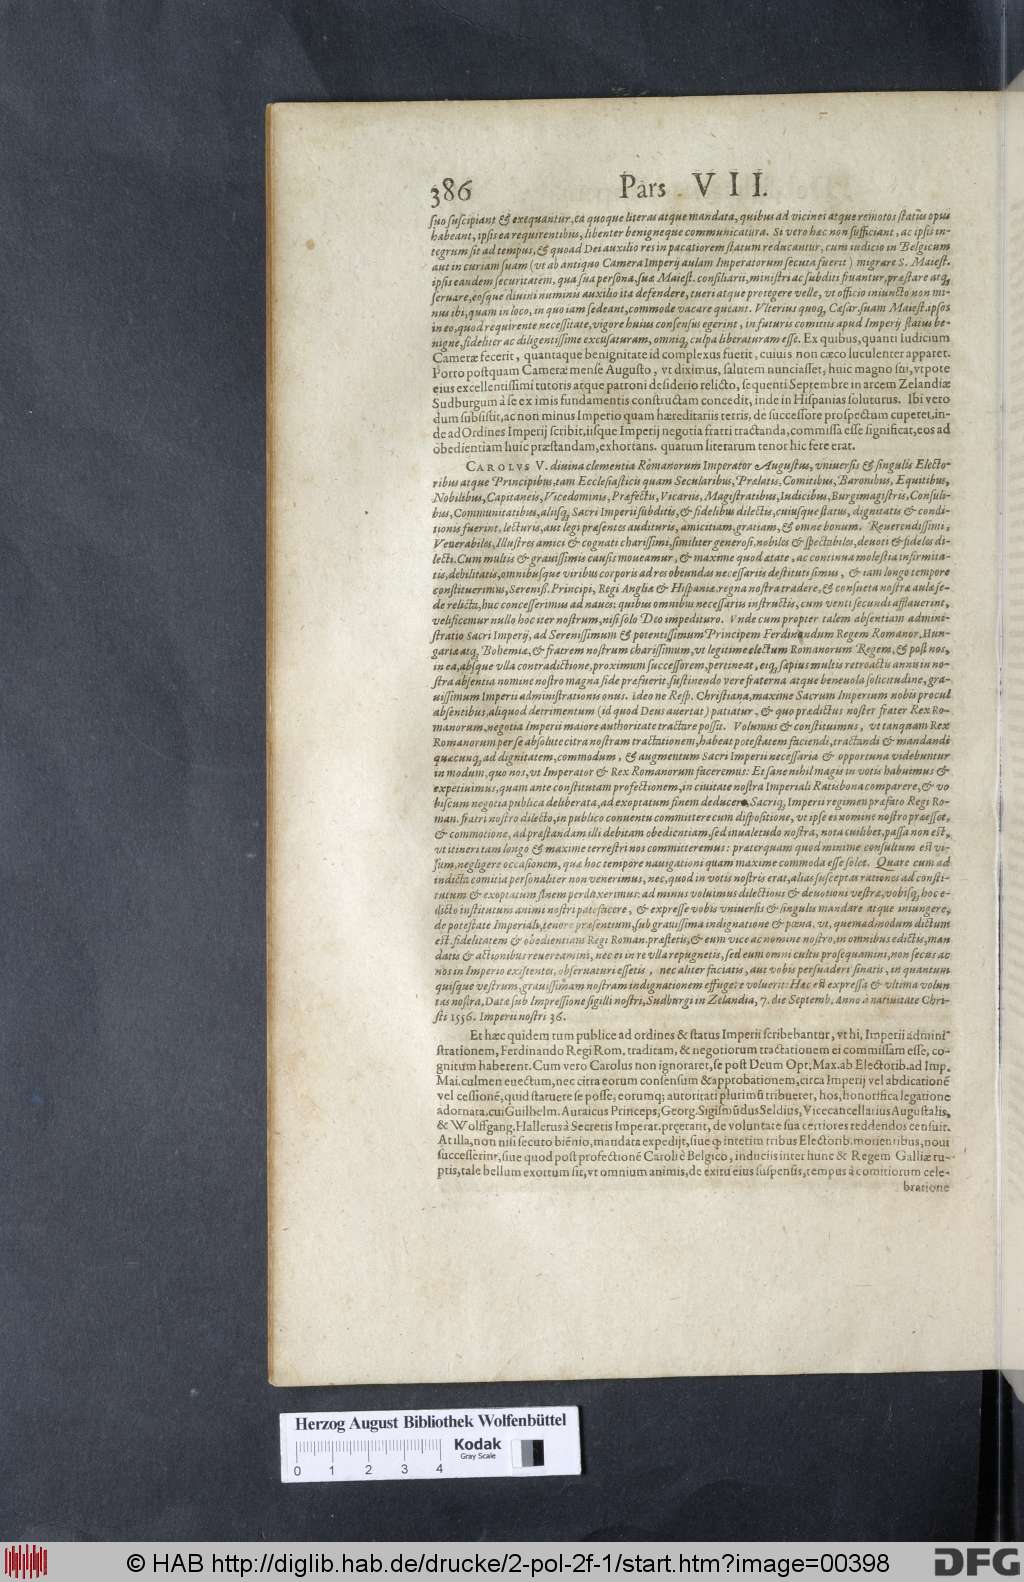 386 Pars VII.
suo suscipiant & exequantur, ea quoque literas atque mandata, quibus ad vicinos atque remotos statûs opus
habeant, ipsis ea requirentibus, libenter benigneque communicatura. Si vero hæc non sufficiant, ac ipsis in-
tegrum sit ad tempus, & quoad Dei auxilio res in pacatiorem statum reducantur, cum iudicio in Belgicum
aut in curiam suam (vt ab antiquo Camera Imperij aulam Imperatorum secuta fuerit) migrare S. Maiest.
ipsis eandem securitatem, qua sua persona, suæ Maiest. consiliarii, ministri ac subditi fruantur, præstare atq;
seruare, eosque diuini numinis auxilio ita defendere, tueri atque protegere velle, vt officio iniuncto non mi-
nus ibi, quam in loco, in quo iam sedeant, commode vacare queant. Vlterius quoq; Cæsar. suam Maiest. ipsos
in eo, quod requirente necessitate, vigore huius consensus egerint, in futuris comitiis apud Imperij status be-
nigne, fideliter ac diligentissime excusaturam, omniq; culpa liberaturam esse. Ex quibus, quanti Iudicium
Cameræ fecerit, quantaque benignitate id complexus fuerit, cuiuis non cæco luculenter apparet.
Porro postquam Cameræ mense Augusto, vt diximus, salutem nunciasset, huic magno sui, vtpote
eius excellentissimi tutoris atque patroni desiderio relicto, sequenti Septembre in arcem Zelandiæ
Sudburgum à se ex imis fundamentis constructam concedit, inde in Hispanias soluturus. Ibi vero
dum subsistit, ac non minus Imperio quam hæreditariis terris, de successore prospectum cuperet, in-
de ad Ordines Imperij scribit, iisque Imperij negotia fratri tractanda, commissa esse significat, eos ad
obedientiam huic præstandam, exhortans. quarum literarum tenor hic fere erat.
CAROLVS V. diuina clementia Romanorum Imperator Augustus, vniuersis & singulis Electo-
ribus atque Principibus, tam Ecclesiasticis quam Secularibus, Prælatis, Comitibus, Baronibus, Equitibus,
Nobilibus, Capitaneis, Vicedominis, Præfectis, Vicariis, Magistratibus, Iudicibus, Burgimagistris, Consuli-
bus, Communitatibus, aliisq; Sacri Imperii subditis, & fidelibus dilectis, cuiusque status, dignitatis & condi-
tionis fuerint, lecturis, aut legi præsentes audituris, amicitiam, gratiam, & omne bonum. Reuerendissimi,
Venerabiles, Illustres amici & cognati charissimi, similiter generosi, nobiles & spectabiles, deuoti & fideles di-
lecti. Cum multis & grauissimis causis moueamur, & maxime quod ætate, ac continua molestia infirmita-
tis, debilitatis, omnibusque viribus corporis ad res obeundas necessariis destituti simus, & iam longo tempore
constituerimus, Sereniss. Principi, Regi Angliæ & Hispaniæ, regna nostra tradere, & consueta nostræ aulæ se-
de relicta, huc concesserimus ad naues: quibus omnibus necessariis instructis, cum venti secundi afflauerint,
velificemur nullo hoc iter nostrum, nisi solo Deo impedituro. Vnde cum propter talem absentiam admini-
stratio Sacri Imperij, ad Serenissimum & potentissimum Principem Ferdinandum Regem Romanor. Hun-
gariæ atq; Bohemiæ, & fratrem nostrum charissimum, vt legitime electum Romanorum Regem, & post nos,
in ea, absque vlla contradictione, proximum successorem, pertineat, eiq; sæpius multis retroactis annis in no-
stra absentia nomine nostro magna fide præfuerit, sustinendo vere fraterna atque beneuola solicitudine, gra-
uissimum Imperii administrationis onus. ideo ne Resp. Christiana, maxime Sacrum Imperium nobis procul
absentibus, aliquod detrimentum (id quod Deus auertat) patiatur, & quo prædictus noster frater Rex Ro-
manorum, negotia Imperii maiore authoritate tractare possit. Volumus & constituimus, vt tanquam Rex
Romanorum per se absolute citra nostram tractationem, habeat potestatem faciendi, tractandi & mandandi
quæcunq; ad dignitatem, commodum, & augmentum Sacri Imperii necessaria & opportuna videbuntur
in modum, quo nos, vt Imperator & Rex Romanorum faceremus: Et sane nihil magis in votis habuimus &
expetiuimus, quam ante constitutam profectionem, in ciuitate nostra Imperiali Ratisbona comparere, & vo
biscum negotia publica deliberata, ad exoptatum finem deducere, Sacriq; Imperii regimen præfato Regi Ro-
man. fratri nostro dilecto, in publico conuentu committere cum dispositione, vt ipse ei nomine nostro præesset,
& commotione, ad præstandam illi debitam obedientiam, sed inualetudo nostra, nota cuilibet, passa non est,
vt itineri tam longo & maxime terrestri nos committeremus: præterquam quod minime consultum est vi-
sum, negligere occasionem, quæ hoc tempore nauigationi quam maxime commoda esse solet. Quare cum ad
indicta comitia personaliter non venerimus, nec, quod in votis nostris erat, alias susceptas rationes ad consti-
tutum & exoptatum finem perduxerimus: ad minus voluimus dilectioni & deuotioni vestræ, vobisq; hoc e-
dicto institutum animi nostri patefacere, & expresse vobis vniuersis & singulis mandare atque iniungere,
de potestate Imperiali, tenore præsentium, sub grauissima indignatione & pœna, vt, quemadmodum dictum
est, fidelitatem & obedientiam Regi Roman. præstetis, & eum vice ac nomine nostro, in omnibus edictis, man
datis & actionibus reuereamini, nec ei in re vlla repugnetis, sed eum omni cultu prosequamini, non secus ac
nos in Imperio existentes, obseruaturi essetis, nec aliter faciatis, aut vobis persuaderi sinatis, in quantum
quisque vestrum, grauissimam nostram indignationem effugere voluerit: Hæc est expressa & vltima volun
tas nostra, Datæ sub Impressione sigilli nostri, Sudburgi in Zelandia, 7. die Septemb. Anno à natiuitate Chri-
sti 1556. Imperii nostri 36.
Et hæc quidem tum publice ad ordines & status Imperii scribebantur, vt hi, Imperii admini-
strationem, Ferdinando Regi Rom. traditam, & negotiorum tractationem ei commissam esse, co-
gnitum haberent. Cum vero Carolus non ignoraret, se post Deum Opt. Max. ab Electorib. ad Imp.
Mai. culmen euectum, nec citra eorum consensum & approbationem, circa Imperij vel abdicationē
vel cessionē, quid statuere se posse; eorumq; autoritati plurimū tribueret, hos, honorifica legatione
adornata, cui Guilhelm. Auraicus Princeps, Georg. Sigismūdus Seldius, Vicecancellarius Augustalis,
& Wolffgang. Hallerus à Secretis Imperat. preerant, de voluntate sua certiores reddendos censuit.
At illa, non nisi secuto biēnio, mandata expedijt, siue q interim tribus Electorib. morientibus, noui
successerint, siue quod post profectionē Caroli è Belgico, induciis inter hunc & Regem Galliæ ru-
ptis, tale bellum exortum sit, vt omnium animis, de exitu eius suspensis, tempus à comitiorum cele-
bratione
Herzog August Bibliothek Wolfenbüttel
Kodak
Gray Scale
0 1 2 3 4
© HAB http://diglib.hab.de/drucke/2-pol-2f-1/start.htm?image=00398
DFG